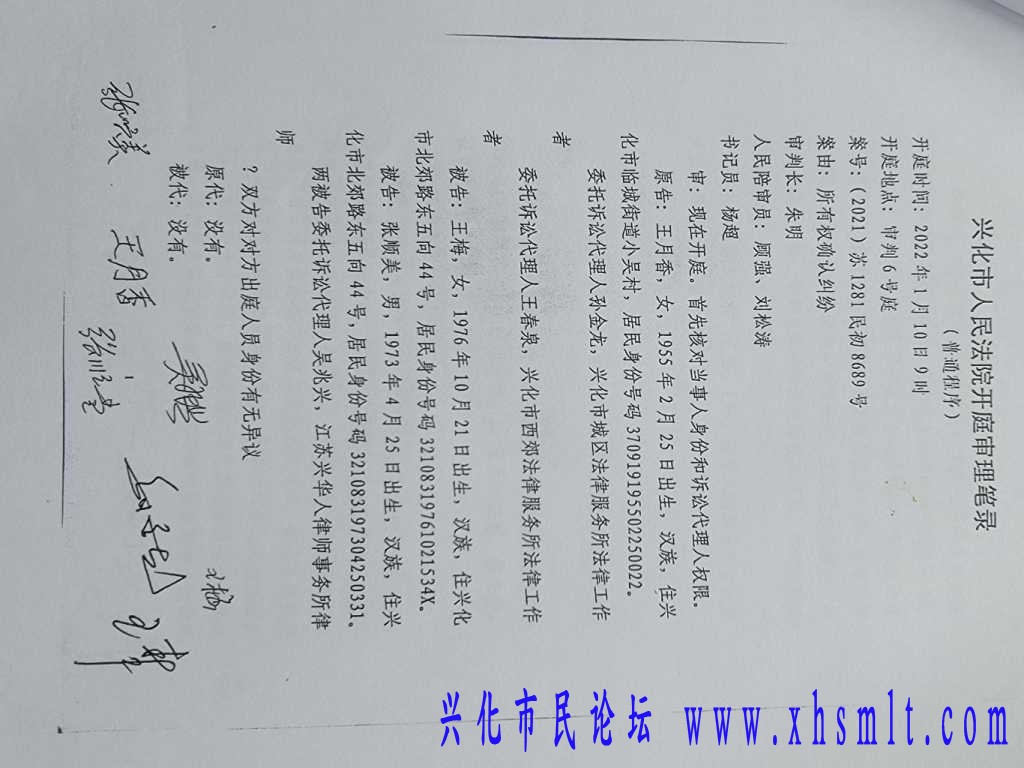 兴化市人民法院开庭审理笔录
（普通程序）
开庭时间：2022年1月10日9时
开庭地点：审判6号庭
案号：(2021)苏1281民初8689号
案由：所有权确认纠纷
审判长：朱明
人民陪审员：顾强、刘松涛
书记员：杨超
审：现在开庭。首先核对当事人身份和诉讼代理人权限。
原告：王月香，女，1955年2月25日出生，汉族，住兴
化市临城街道小吴村，居民身份号码370919195502250022。
委托诉讼代理人孙金龙，兴化市城区法律服务所法律工作
者
委托诉讼代理人王春泉，兴化市西郊法律服务所法律工作
者
被告：王梅，女，1976年10月21日出生，汉族，住兴化
市北郊路东五向44号，居民身份号码32108319761021534X。
被告：张顺美，男，1973年4月25日出生，汉族，住兴
化市北郊路东五向44号，居民身份号码321083197304250331。
两被告委托诉讼代理人吴兆兴，江苏兴华人律师事务所律
师
？双方对对方出庭人员身份有无异议
原代：没有。
被代：没有。
王月香
王梅
兴化市民论坛 www.xhsmlt.com